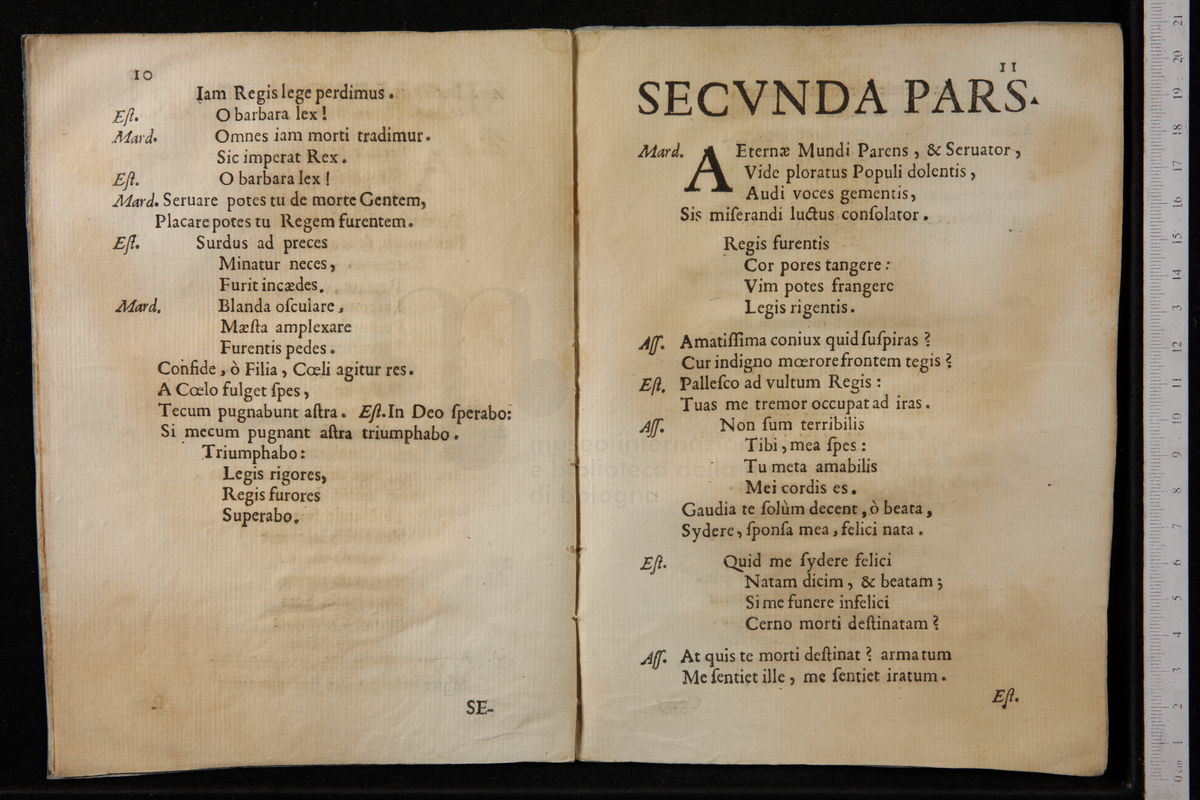 10
Iam Regis lege perdimus.
Eſt. O barbara lex!
Mard. Omnes iam morti tradimur.
Sic imperat Rex.
Eſt. O barbara lex!
Mard. Seruare potes tu de morte Gentem,
Placare potes tu Regem furentem.
Eſt. Surdus ad preces
Minatur neces,
Furit incædes.
Mard. Blanda oſculare,
Mæſta amplexare
Furentis pedes.
Confide, ò Filia, Cœli agitur res.
A Cœlo fulget ſpes,
Tecum pugnabunt aſtra. Eſt. In Deo ſperabo:
Si mecum pugnant aſtra triumphabo.
Triumphabo:
Legis rigores,
Regis furores
Superabo.
SE-
11
SECVNDA PARS.
Mard. AEternæ Mundi Parens, & Seruator,
Vide ploratus Populi dolentis,
Audi voces gementis,
Sis miſerandi luctus conſolator.
Regis furentis
Cor pores tangere:
Vim potes frangere
Legis rigentis.
Aſſ. Amatiſſima coniux quid ſuſpiras?
Cur indigno mœrore frontem tegis?
Eſt. Palleſco ad vultum Regis:
Tuas me tremor occupat ad iras.
Aſſ. Non ſum terribilis
Tibi, mea ſpes:
Tu meta amabilis
Mei cordis es.
Gaudia te ſolùm decent, ò beata,
Sydere, ſponſa mea, felici nata.
Eſt. Quid me ſydere felici
Natam dicim, & beatam;
Si me funere infelici
Cerno morti deſtinatam?
Aſſ. At quis te morti deſtinat? armatum
Me ſentiet ille, me ſentiet iratum.
Eſt.
museo internaz
e biblioteca della
di bologna